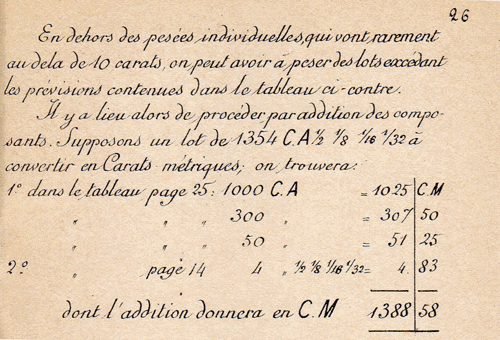 26
En dehors des pesées individuelles, qui vont rarement
au delà de 10 carats, on peut avoir à peser des lots excédant
les prévisions contenues dans le tableau ci-contre.
Il y a lieu alors de procéder par addition des compo-
sants. Supposons un lot de 1354 C.A ½ ⅛ 1/16 1/32 à
convertir en Carats métriques; on trouvera:
1º dans le tableau page 25: 1000 C.A = 1025 C.M
" " " 300 " = 307 50
" " " 50 " = 51 25
2º " page 14 4 " ½ ⅛ 1/16 1/32 = 4. 83
dont l'addition donnera en C.M 1388 58